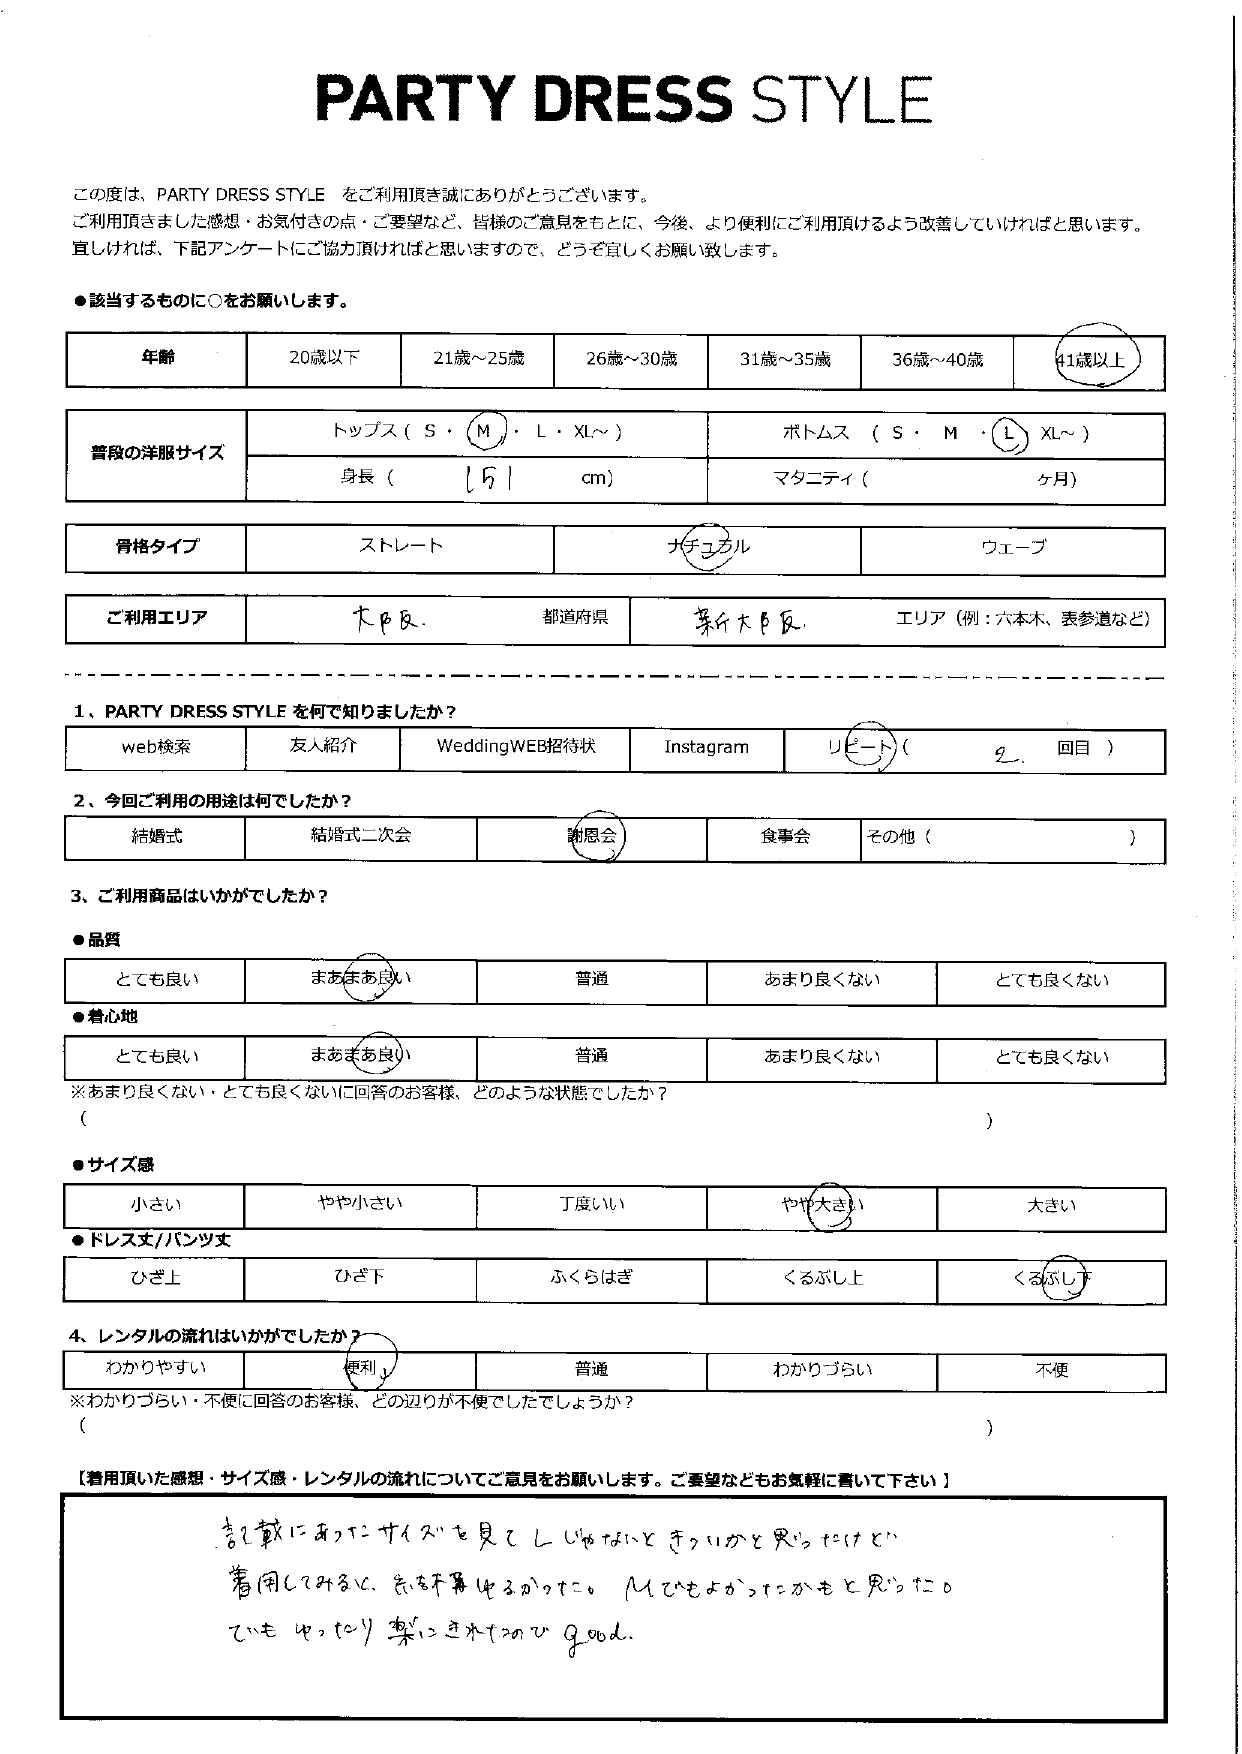 PARTY DRESS STYLE
この度は、PARTY DRESS STYLE をご利用頂き誠にありがとうございます。
ご利用頂きました感想・お気付きの点・ご要望など、皆様のご意見をもとに、今後、より便利にご利用頂けるよう改善していければと思います。
宜しければ、下記アンケートにご協力頂ければと思いますので、どうぞ宜しくお願い致します。
●該当するものに○をお願いします。
年齢 20歳以下 21歳～25歳 26歳～30歳 31歳～35歳 36歳～40歳 41歳以上
普段の洋服サイズ トップス ( S ・ M ・ L ・ XL～ ) ボトムス ( S ・ M ・ L XL～ )
身長 ( 151 cm) マタニティ ( ヶ月)
骨格タイプ ストレート ナチュラル ウェーブ
ご利用エリア 大阪. 都道府県 新大阪. エリア（例：六本木、表参道など）
1、PARTY DRESS STYLE を何で知りましたか？
web検索 友人紹介 WeddingWEB招待状 Instagram リピート ( 2. 回目 )
2、今回ご利用の用途は何でしたか？
結婚式 結婚式二次会 謝恩会 食事会 その他 ( )
3、ご利用商品はいかがでしたか？
●品質
とても良い まあまあ良い 普通 あまり良くない とても良くない
●着心地
とても良い まあまあ良い 普通 あまり良くない とても良くない
※あまり良くない・とても良くないに回答のお客様、どのような状態でしたか？
( )
●サイズ感
小さい やや小さい 丁度いい やや大きい 大きい
●ドレス丈/パンツ丈
ひざ上 ひざ下 ふくらはぎ くるぶし上 くるぶし下
4、レンタルの流れはいかがでしたか？
わかりやすい 便利 普通 わかりづらい 不便
※わかりづらい・不便に回答のお客様、どの辺りが不便でしたでしょうか？
( )
【着用頂いた感想・サイズ感・レンタルの流れについてご意見をお願いします。ご要望などもお気軽に書いて下さい 】
記載にあったサイズを見て Lじゃないと きついかと思ったけど
着用してみると、結構ゆるかった。 Mでもよかったかもと思った。
でも ゆったり 楽にきれたので good.